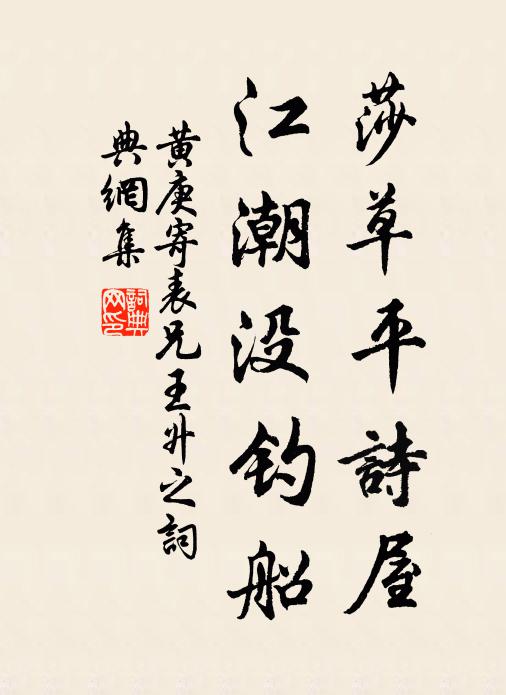 莎草平詩屋
江潮没钓船
黄庚寄表兄王升之詞
典網集
詞典
网印